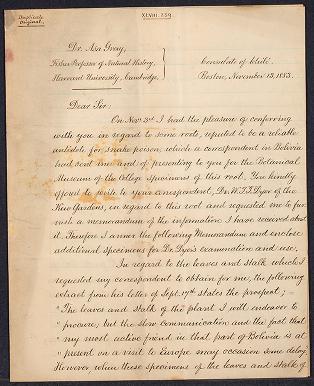 Duplicate
Original.
XLVIII. 239
Dr. Asa Gray,
Fisher Professor of Natural History,
Harvard University, Cambridge.
Consulate of Chile.
Boston, November 13, 1883.
Dear Sir:
On Nov. 3rd I had the pleasure of conferring
with you in regard to some roots, reputed to be a reliable
antidote for snake poison, which a correspondent in Bolivia
had sent me and of presenting to you for the Botanical
Museum of the College specimens of this root. You kindly
offered to write to your correspondent, Dr. W.T.T. Dyer of the
Kew Gardens, in regard to this root and requested me to fur-
nish a memorandum of the information I have received about
it. Therefore I annex the following Memorandum and enclose
additional specimens for Dr. Dyer's examination and use.
In regard to the leaves and stalk which I
requested my correspondent to obtain for me, the following
extract from his letter of Sept. 17th states the prospect; –
"The leaves and stalk of the plant I will endeavor to
procure, but the slow communication and the fact that
my most active friend in that part of Bolivia is at
present on a visit to Europe may occasion some delay.
However when these specimens of the leaves and stalk of